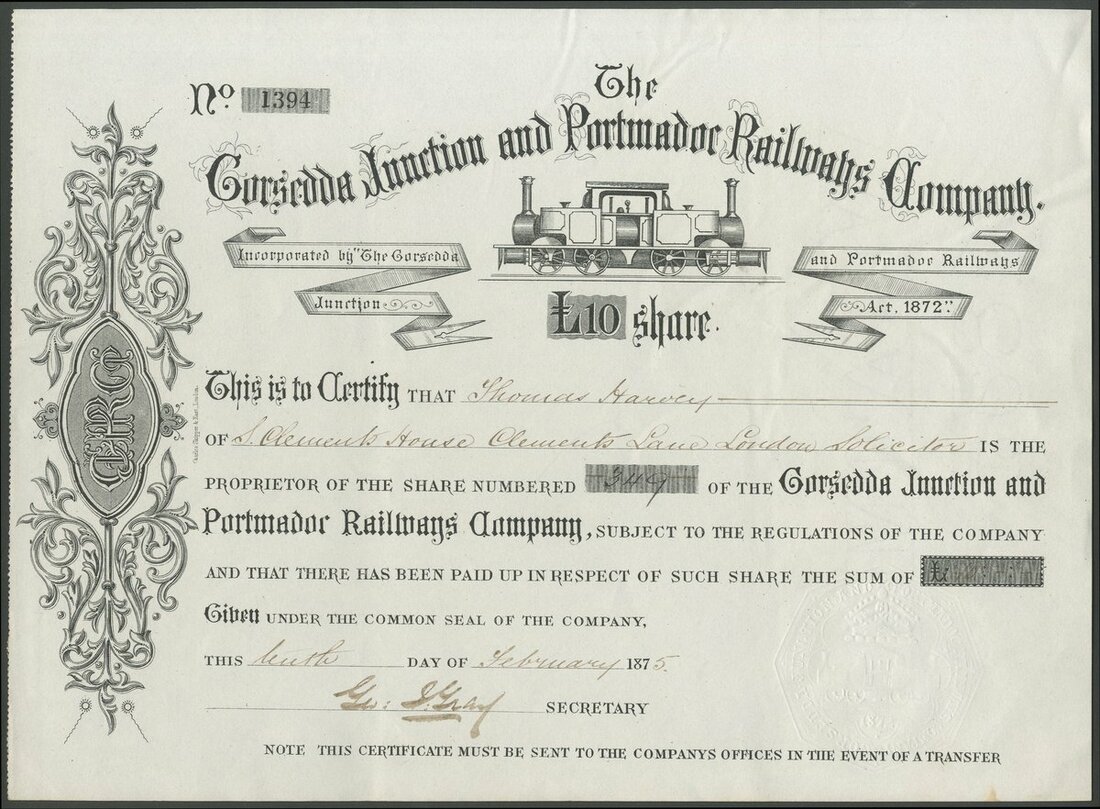 No 1394
The
Gorsedda Junction and Portmadoc Railways Company.
Incorporated by "The Gorsedda
Junction
and Portmadoc Railways
Act, 1872".
£10 share.
This is to Certify THAT Thomas Harvey
OF S. Clements House Clements Lane London Solicitor IS THE
PROPRIETOR OF THE SHARE NUMBERED 349 OF THE Gorsedda Junction and
Portmadoc Railways Company, SUBJECT TO THE REGULATIONS OF THE COMPANY
AND THAT THERE HAS BEEN PAID UP IN RESPECT OF SUCH SHARE THE SUM OF £
Given UNDER THE COMMON SEAL OF THE COMPANY,
THIS tenth DAY OF February 1875.
Geo: J. Gray SECRETARY
NOTE THIS CERTIFICATE MUST BE SENT TO THE COMPANYS OFFICES IN THE EVENT OF A TRANSFER